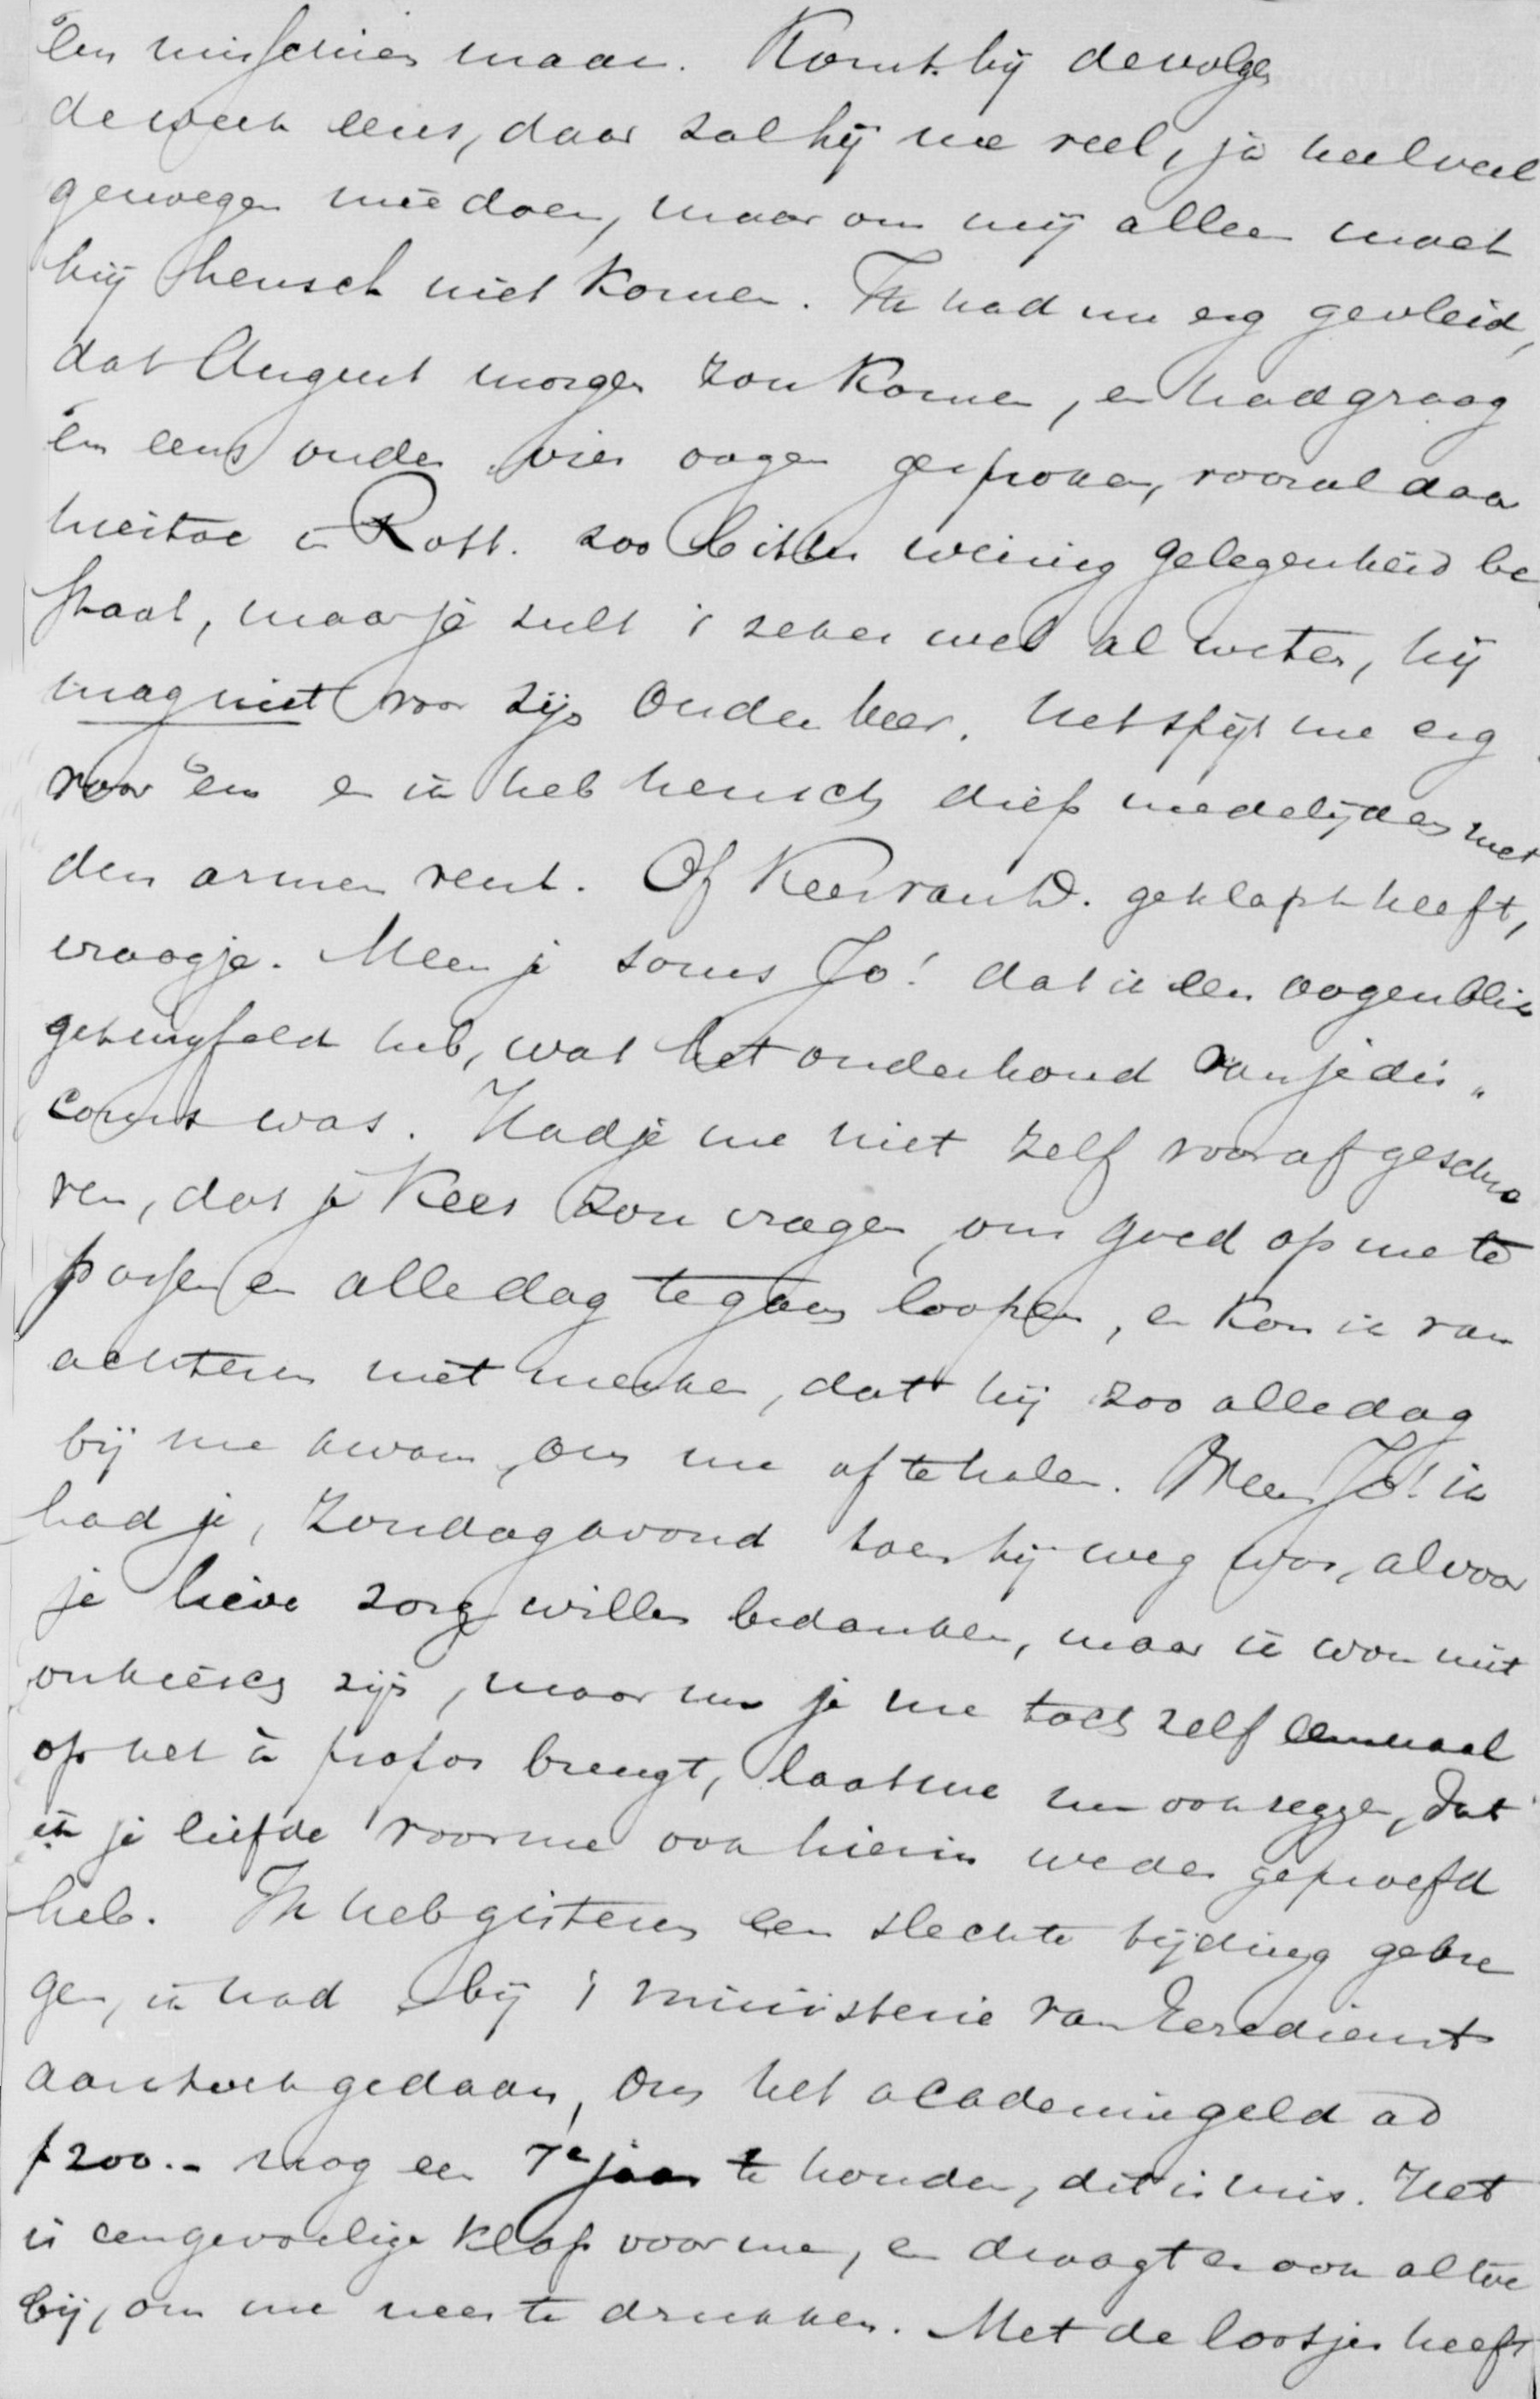 'em misschien maar. Komt hij de volgen
de week eens, daar zal hij me veel, ja heel veel
genoegen meê doen, maar om mij alleen moet
hij heusch niet komen. Ik had me erg gevleid,
dat August morgen zou komen, en had graag
'em eens onder vier oogen gesproken, vooral daar
hiertoe in Rott. zoo bitter weinig gelegenheid be
staat, maar je zult 't zeker wel al weten, hij
mag niet voor zijn Ouden heer. Het spijt me erg
voor 'em en ik heb heusch diep medelijden met
den armen vent. Of Kees van D. geklapt heeft,
vraag je. Meen je soms Jo! dat ik een oogenblik
getwijfeld heb, wat het onderhoud van je dis„
cours was. Had je me niet zelf vooraf geschre
ven, dat je Kees zou vragen, om goed op me te
passen en alle dag te gaan loopen, en kon ik van
achteren niet merken, dat hij zoo alle dag
bij me kwam, om me af te halen. Neen Jo! ik
had je, Zondagavond toen hij weg was, al voor
je lieve zorg willen bedanken, maar ik wou niet
onkiesch zijn, maar nu je me toch zelf eenmaal
op het à propos brengt, laat me nu ook zeggen, dat
ik je liefde voor me ook hierin weder geproefd
heb. Ik heb gisteren een slechte tijding gekre
gen, ik had bij 't ministerie van Eeredienst
aanzoek gedaan, om het academiegeld ad
f 200.- nog een 7e jaar te houden, dit is mis. Het
is een gevoelige klap voor me, en draagt er ook al toe
bij, om me neer te drukken. Met de lootjes heeft